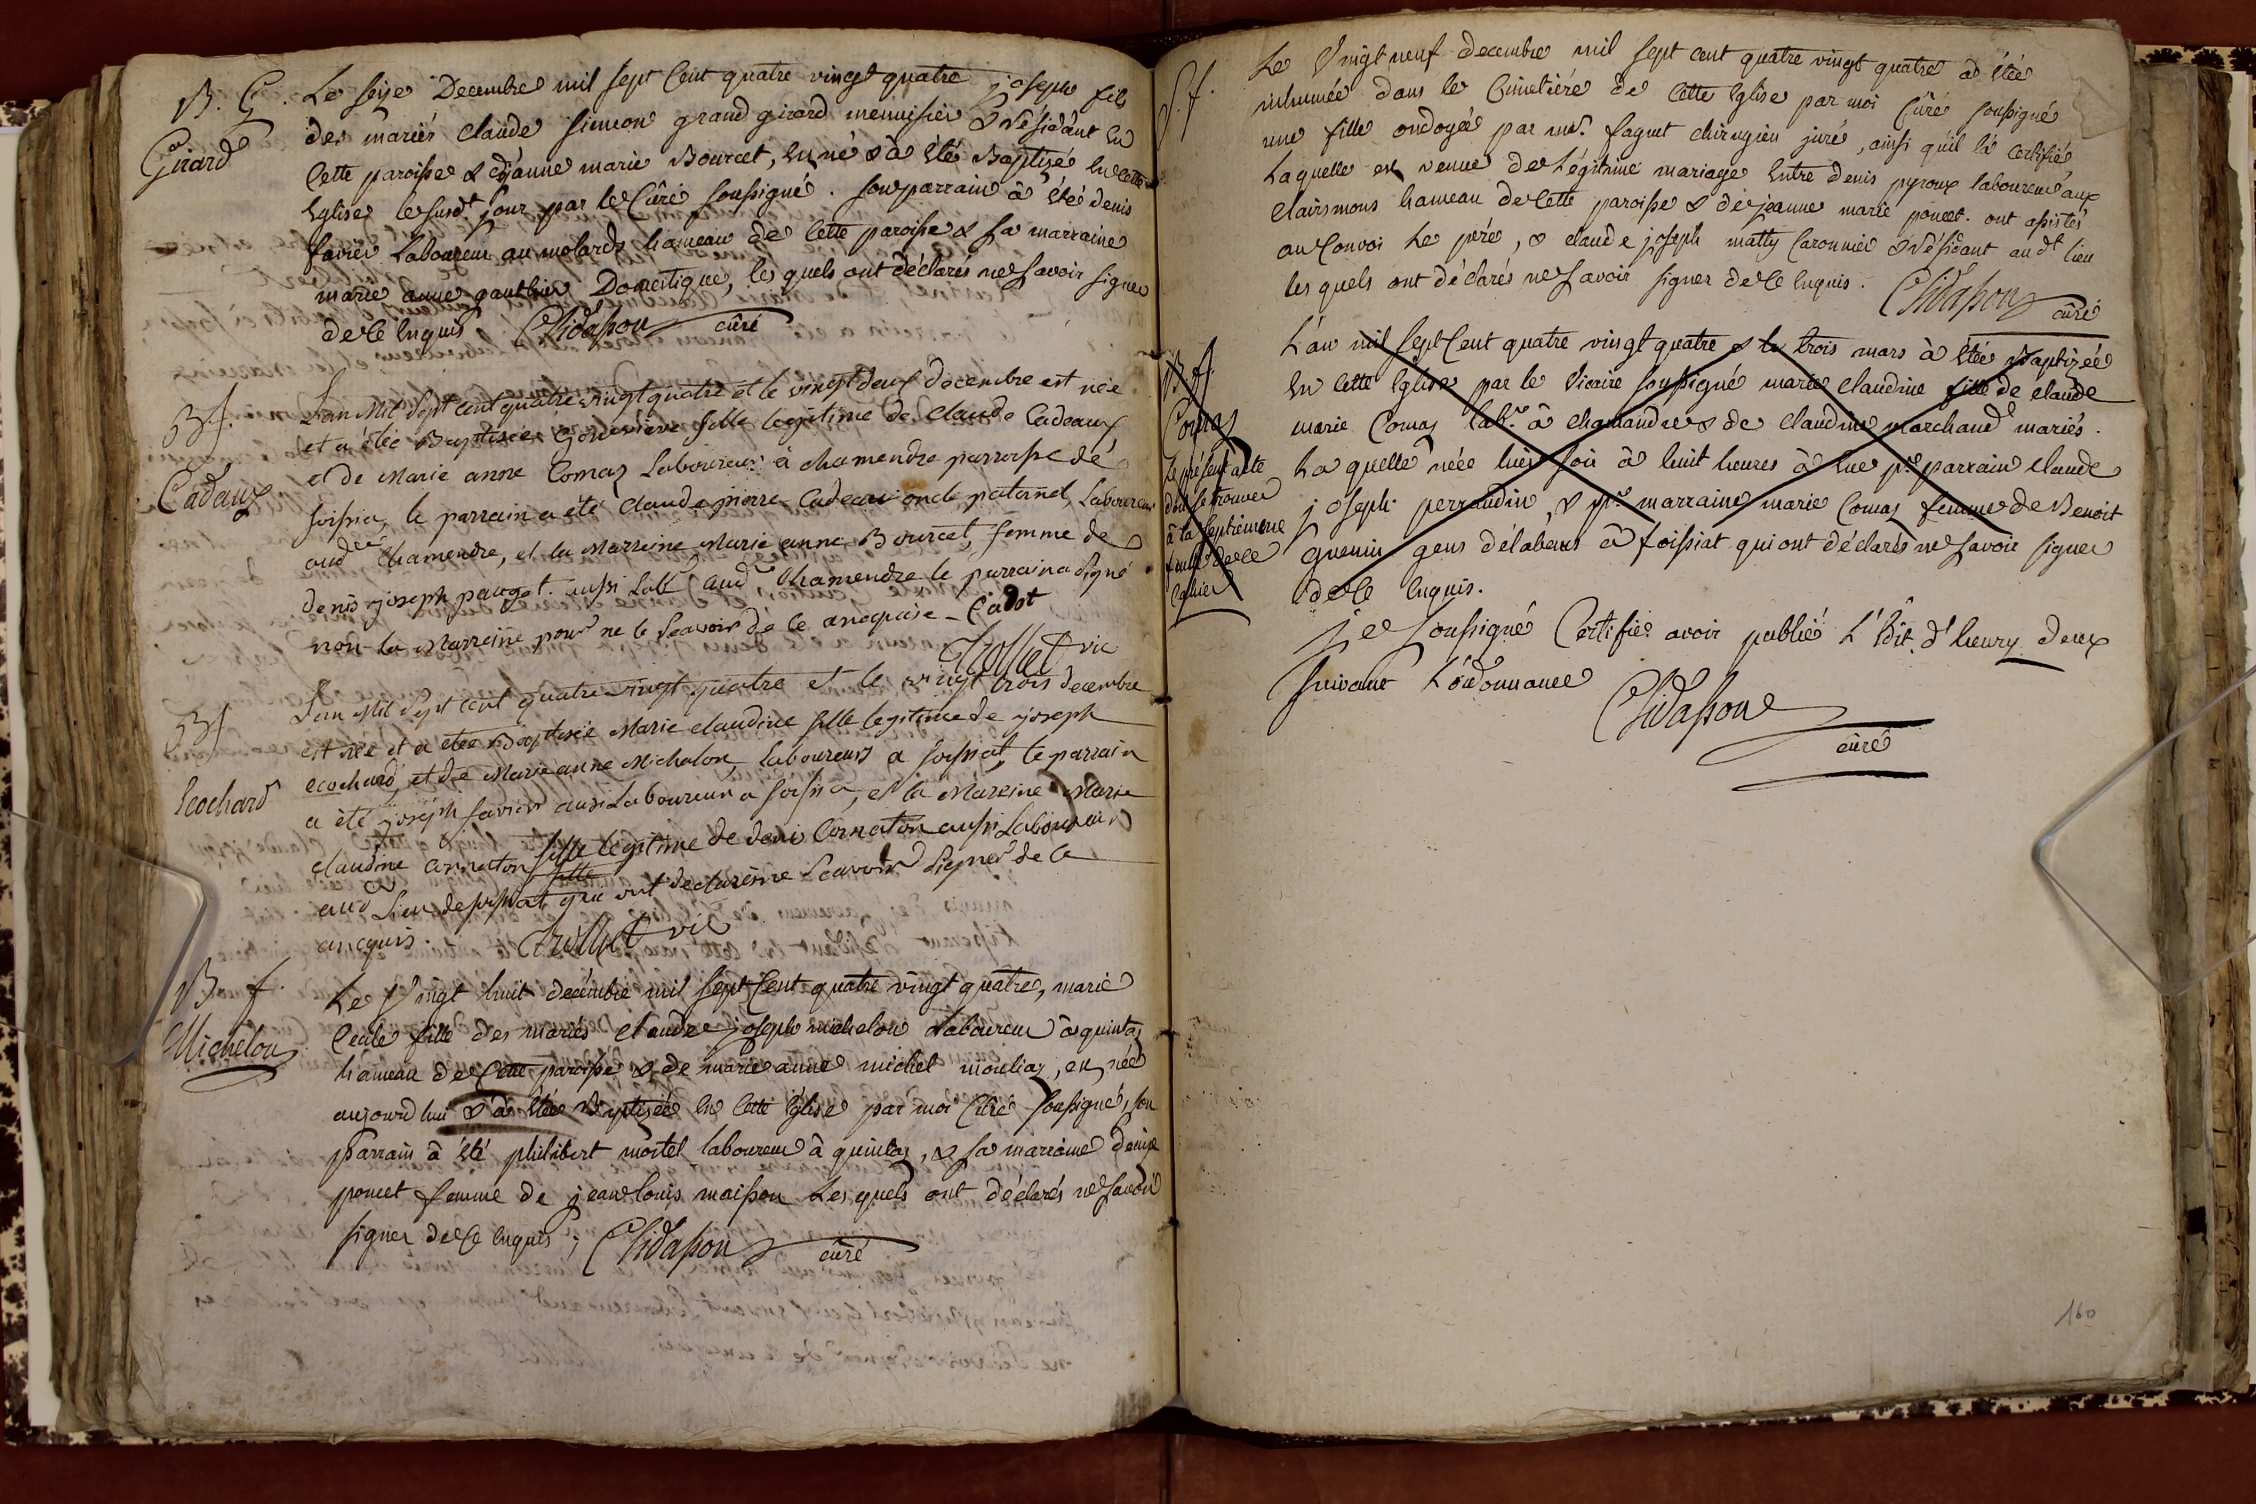 B. G.
Girard
Le seize Decembre mil sept Cent quatre vingt quatre joseph fils
des mariés claude simeon grand girard menuisier & résidant en
Cette paroisse & de jeanne marie Bourcet, est né & à été Baptizé en cette
Eglise le susdt jour par le Curé soussigné. son parrain à été denis
favier Laboureur au molards hameau de cette paroisse & sa marraine
marie anne gauthier Domestique, les quels ont déclarés ne savoir signer
de ce enquis Chidasson curé
B f.
Cadaux
L'an Mil Sept cent quatre vingt quatre et le vingt deux decembre est née
et a étée Baptisée Genevieve fille legitime de claude Cadeaux
et de Marie anne Comaz Laboureurs à chamendre parroisse dé
foissia, le parrain a été Claude pierre Cadeau oncle paternel, Laboureur
aud Chamendre, et la Marreine Marie anne Bourcet, femme de
denis joseph pauget. aussi Lab aud Chamendre le parrain a signé
non la Marreine pour ne le Scavoir dé ce anequise - Cadot
Trollliet vic
B f
Ecochard
L'an Mil Sept cent quatre vingt quatre et le vingt trois decembre
est née et a étée Baptisée Marie claudine fille legitime de joseph
ecochard, et de Marie anne Michalon, laboureurs a foissiat, le parrain
a été joseph favier aussi Laboureur a foissia, et la Mareine Marie
claudine cornaton fille legitime de denis Cornaton aussi Laboureur
aud Lieu de foissiat que ont declarés ne Scavoir Signer de ce
anequis. Trolliet vic
B f.
Michelon
Le Vingt huit decembre mil sept Cent quatre vingt quatre, marie
Cecile fille des mariés claude joseph michelon Laboureur à quintaz
hameau de Cette paroisse & de marie anne michel mouliaz, est née
aujourdhui & à étée Baptizée en cette Eglise par moi Curé soussigné, son
parrain à été philibert moitel laboureur à quintaz, & sa marraine denise
poncet femme de jean louis maisson Les quels ont déclarés ne savoir
signer de ce enquis; Chidasson curé
S. f.
Le Vingt neuf decembre mil sept cent quatre vingt quatre à étée
inhumée dans le Cimetiére de cette Eglise par moi Curé soussigné
une fille ondoyée par mr. faguet chirugien juré, ainsi qu'il là certifié
Laquelle est venue de Légitime mariage Entre denis pyroux laboureur aux
clairsmons hameau de Cette paroisse & de jeanne marie poncet. ont assistés
au Convoi Le peré, & claude joseph matty Caronnier & résidant audt lieu
les quels ont déclarés ne savoir signer de ce enquis. Chidasson curé
B f.
Comaz
Le présent acte
doit se trouver
à la septiémme
feuille de ce
Cahier
L'an mil sept Cent quatre vingt quatre & le trois mars à étée Baptizée
en cette Eglise par le Vicaire soussigné marie claudine fille de claude
marie Comaz labr. à chamandre & de claudine marchand mariés.
Laquelle néee hier soir à huit heures à eue pr parrain claude
joseph perraudin, & pr. marraine marie Comaz femme de Benoit
guenin gens délabeurs à foissiat qui ont déclarés ne savoir signer
de ce enquis.
je Soussigné Certifie avoir publié L'Edit d'henry deux
suivant L'ordonnance
Chidasson
curé
160